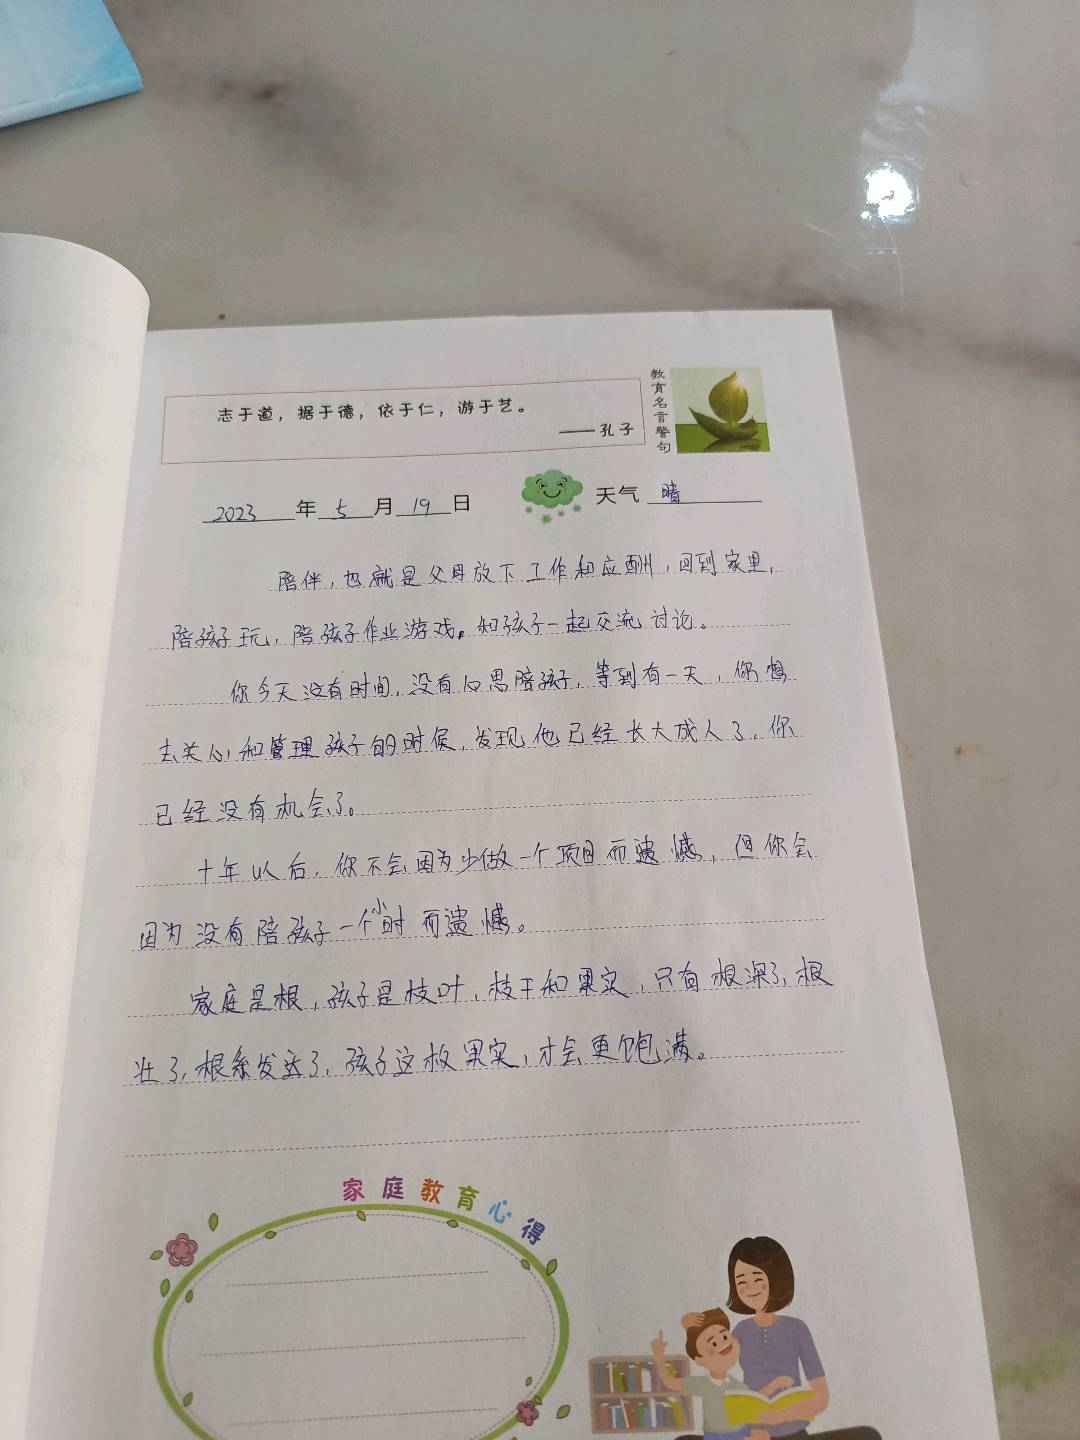 志于道，据于德，依于仁，游于艺。
——孔子
教育名言警句
2023年5月19日
天气 晴
陪伴，也就是父母放下工作和应酬，回到家里，
陪孩子玩，陪孩子作业游戏。和孩子一起交流讨论。
你今天没有时间，没有心思陪孩子，等到有一天，你想
去关心和管理孩子的时候，发现他已经长大成人了，你
已经没有机会了。
十年以后，你不会因为少做一个项目而遗憾，但你会
因为没有陪孩子一个小时而遗憾。
家庭是根，孩子是枝叶，枝干和果实，只有根深了，根
壮了，根系发达了，孩子这枚果实，才会更饱满。
家庭教育心得